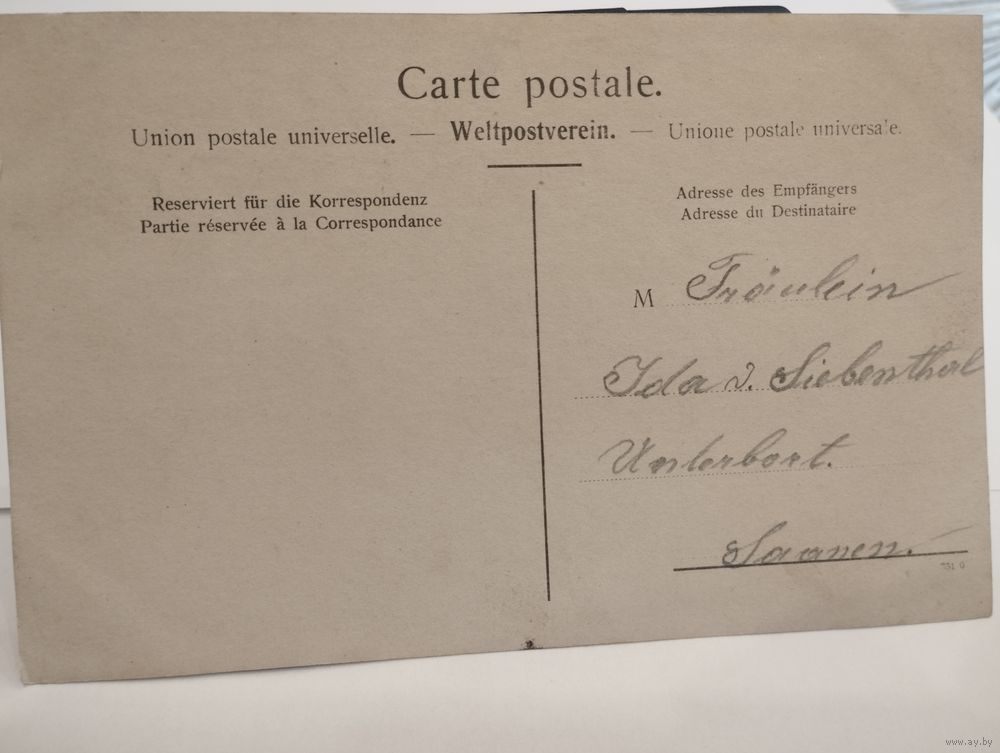 Carte postale.
Union postale universelle. — Weltpostverein. — Unione postale universale.
Reserviert für die Korrespondenz
Partie réservée à la Correspondance
Adresse des Empfängers
Adresse du Destinataire
M Fräulein
Ida v. Siebenthal
Unterbort.
Saanen.
www.ay.by